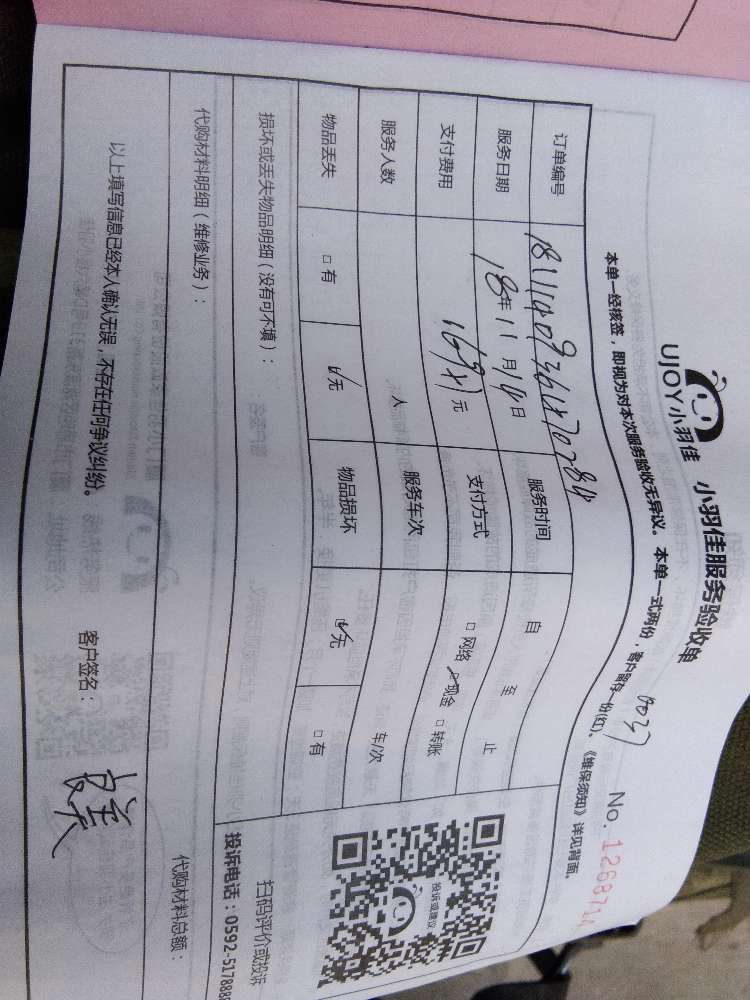 UJOY小羽佳 小羽佳服务验收单
No.
本单一经核签，即视为对本次服务验收无异议。本单一式两份，客户留存一份(红)。《维保须知》详见背面。
订单编号 服务时间 自 至 止
服务日期 18年11月14日 支付方式 □网络 ☑现金 □转账
支付费用 元 服务车次 车/次
服务人数 人 物品损坏 ☑无 □有
物品丢失 □有 ☑无
损坏或丢失物品明细（没有可不填）：
投诉或建议
扫码评价或投诉
投诉电话：0592-5178888
代购材料明细（维修业务）： 代购材料总额：
以上填写信息已经本人确认无误，不存在任何争议纠纷。 客户签名：